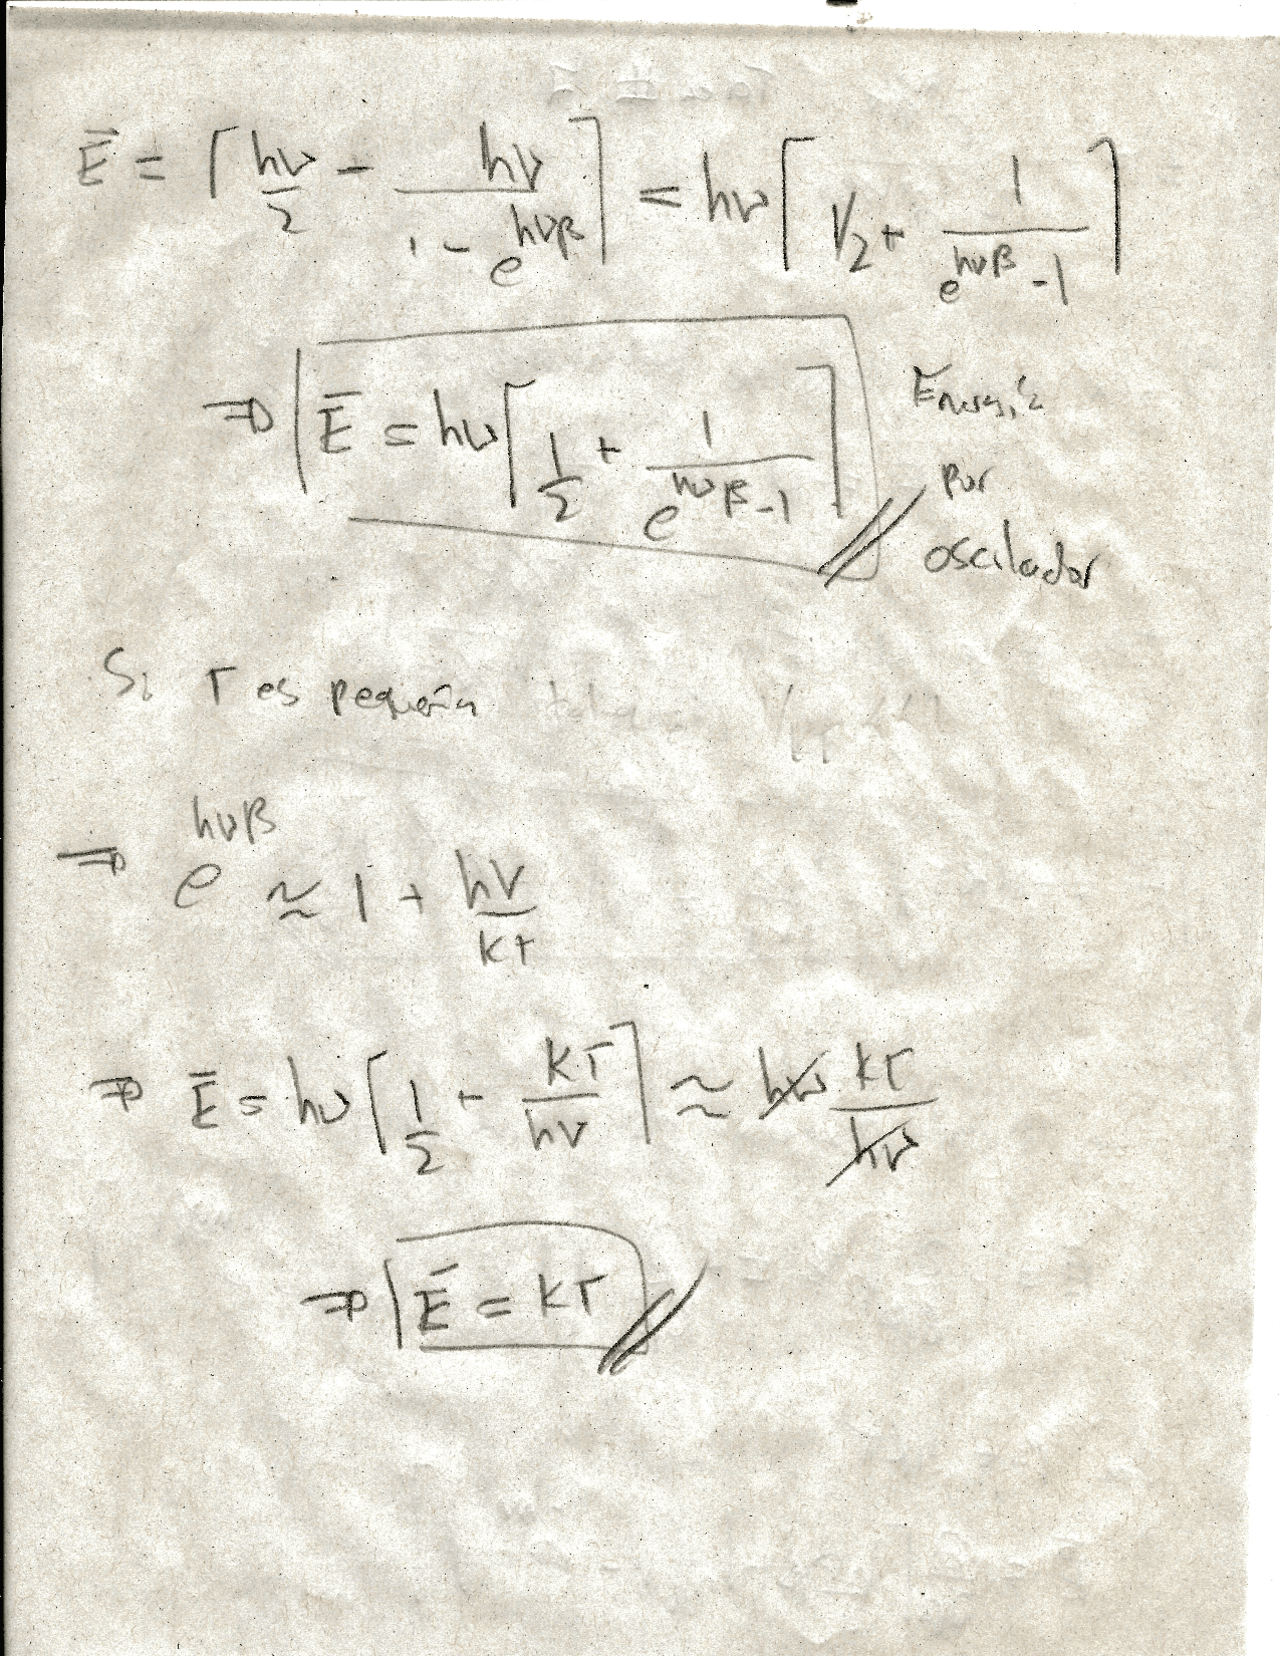 Ē = [hν/2 - hν/(1 - e^{hνβ})] = hν[1/2 + 1/(e^{hνβ} - 1)]
⇒ Ē = hν[1/2 + 1/(e^{hνβ} - 1)] Energía
por
oscilador
Si T es pequeña
⇒ e^{hνβ} ≈ 1 + hν/kT
⇒ Ē = hν[1/2 + kT/hν] ≈ hν kT/hν
⇒ Ē = kT